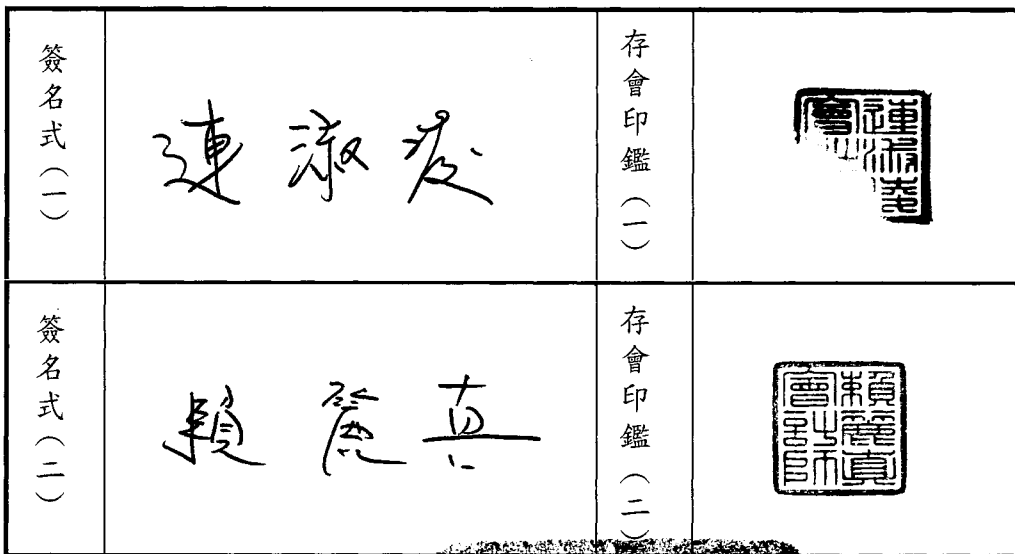 簽名式(一)
連淑凌
存會印鑑(一)
連淑凌
會
簽名式(二)
賴麗真
存會印鑑(二)
賴麗真
會計師